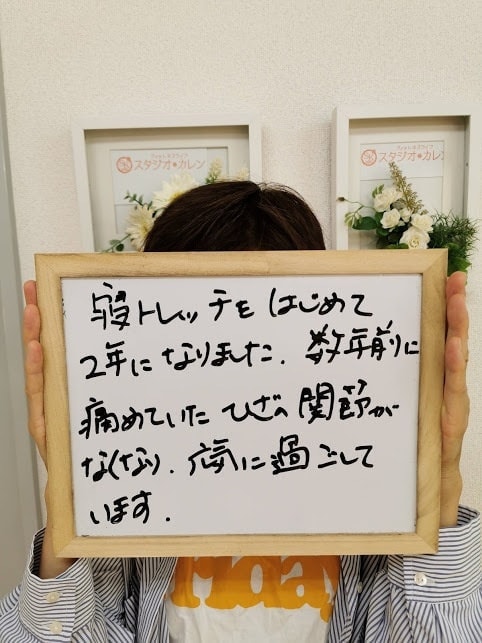 スタジオ・カレン
スタジオ・カレン
寝トレッチを はじめて
2年に なりました. 数年前に
痛めていた ひざの 関節が
なくなり. に過ごして
います.